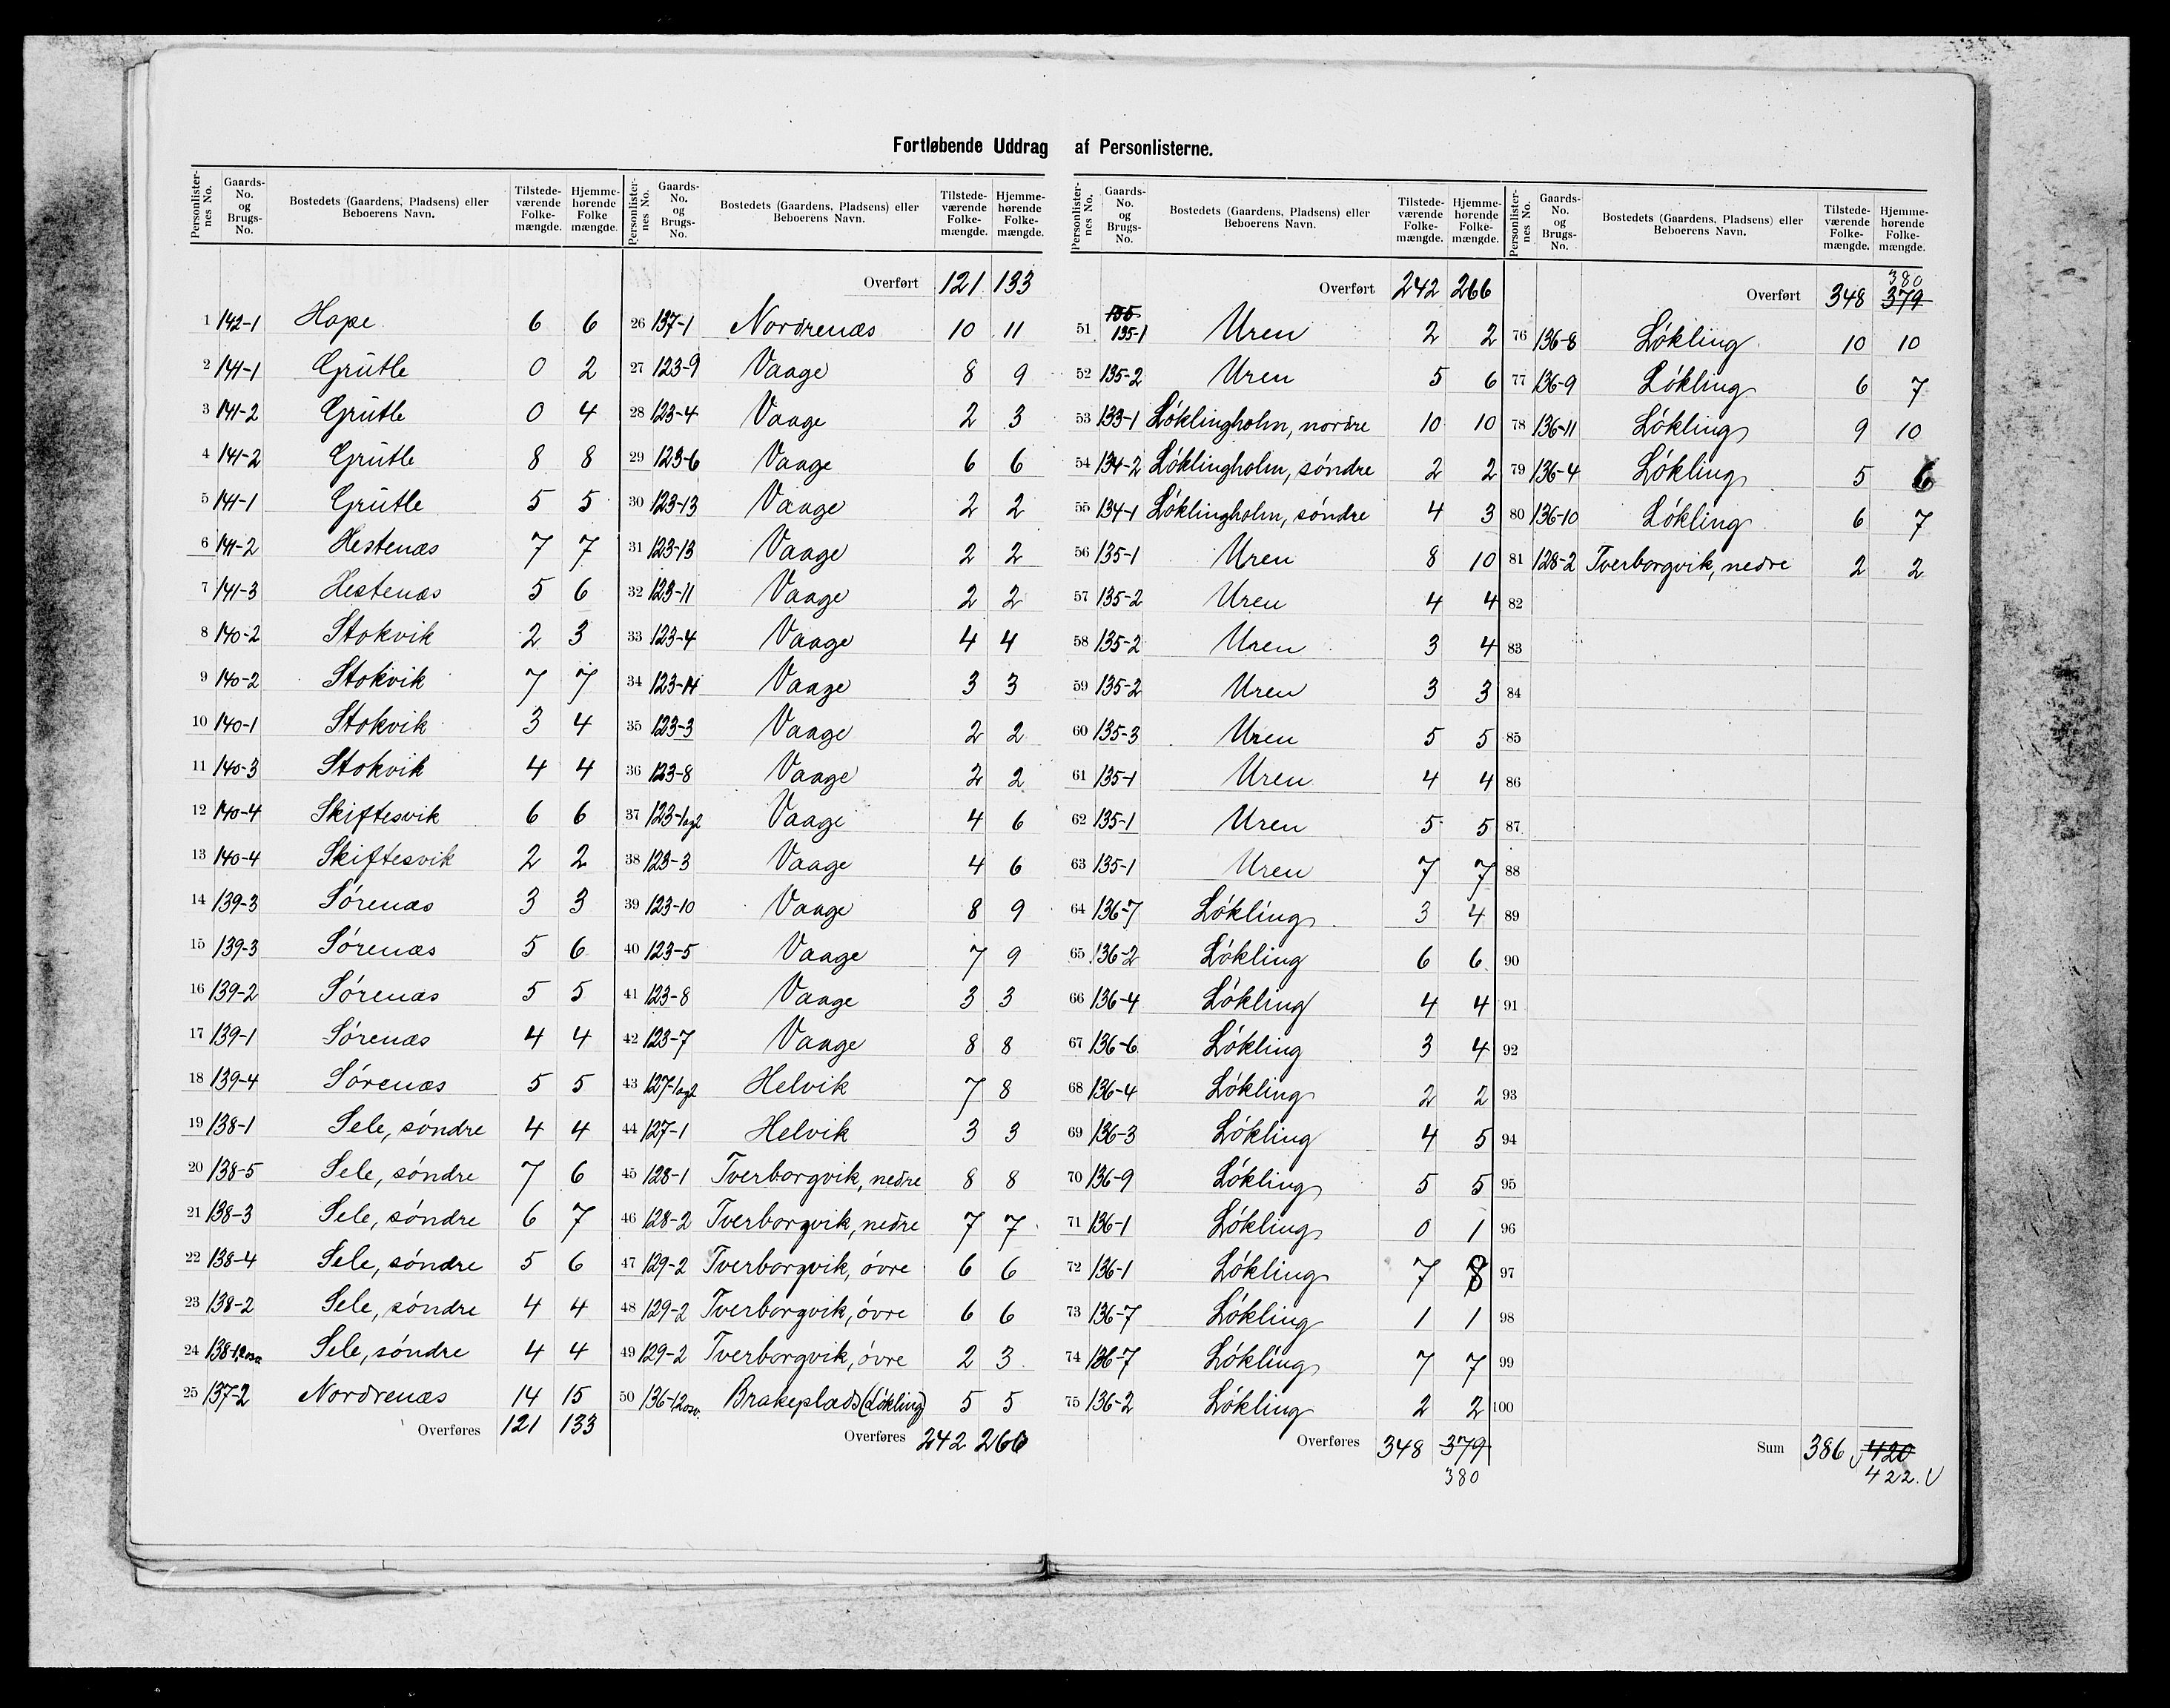 Fortløbende Uddrag af Personlisterne.
Personlister-nes No. Gaards-No. og Brugs-No. Bostedets (Gaardens, Pladsens) eller Beboerens Navn. Tilstede-værende Folke-mængde. Hjemme-hørende Folke mængde.
1 142-1 Hope 6 6
2 141-1 Grütle 0 2
3 141-2 Grütle 0 4
4 141-2 Grütle 8 8
5 141-1 Grütle 5 5
6 141-2 Hestenæs 7 7
7 141-3 Hestenæs 5 6
8 140-2 Stokvik 2 3
9 140-2 Stokvik 7 7
10 140-1 Stokvik 3 4
11 140-3 Stokvik 4 4
12 140-4 Skiftesvik 6 6
13 140-4 Skiftesvik 2 2
14 139-3 Sórenæs 3 3
15 139-3 Sórenæs 5 6
16 139-2 Sórenæs 5 5
17 139-1 Sórenæs 4 4
18 139-4 Sórenæs 5 5
19 138-1 Sele, søndre 4 4
20 138-5 Sele, søndre 7 6
21 138-3 Sele, søndre 6 7
22 138-4 Sele, søndre 5 6
23 138-2 Sele, søndre 4 4
24 138-1,2osv Sele, søndre 4 4
25 137-2 Nordrenæs 14 15
Overføres 121 133
Personlister-nes No. Gaards-No. og Brugs-No. Bostedets (Gaardens, Pladsens) eller Beboerens Navn. Tilstede-værende Folke-mængde. Hjemme-hørende Folke-mængde.
Overført 121 133
26 137-1 Nordrenæs 10 11
27 123-9 Vaage 8 9
28 123-4 Vaage 2 3
29 123-6 Vaage 6 6
30 123-13 Vaage 2 2
31 123-13 Vaage 2 2
32 123-11 Vaage 2 2
33 123-4 Vaage 4 4
34 123-14 Vaage 3 3
35 123-3 Vaage 2 2
36 123-8 Vaage 2 2
37 123-1og2 Vaage 4 6
38 123-3 Vaage 4 6
39 123-10 Vaage 8 9
40 123-5 Vaage 7 9
41 123-8 Vaage 3 3
42 123-7 Vaage 8 8
43 127-1og2 Helvik 7 8
44 127-1 Helvik 3 3
45 128-1 Tverborgvik, nedre 8 8
46 128-2 Tverborgvik, nedre 7 7
47 129-2 Tverborgvik, óvre 6 6
48 129-2 Tverborgvik, óvre 6 6
49 129-2 Tverborgvik, óvre 2 3
50 136-12osv. Brakeplads (Lókling) 5 5
Overføres 242 266
Personlister-nes No. Gaards-No. og Brugs-No. Bostedets (Gaardens, Pladsens) eller Beboerens Navn. Tilstede-værende Folke-mængde. Hjemme-hørende Folke-mængde.
Overført 242 266
135
51 135-1 Uren 2 2
52 135-2 Uren 5 6
53 133-1 Lóklingholm, nordre 10 10
54 134-2 Lóklingholm, søndre 2 2
55 134-1 Lóklingholm, søndre 4 3
56 135-1 Uren 8 10
57 135-2 Uren 4 4
58 135-2 Uren 3 4
59 135-2 Uren 3 3
60 135-3 Uren 5 5
61 135-1 Uren 4 4
62 135-1 Uren 5 5
63 135-1 Uren 7 7
64 136-7 Lókling 3 4
65 136-2 Lókling 6 6
66 136-4 Lókling 4 4
67 136-6 Lókling 3 4
68 136-4 Lókling 2 2
69 136-3 Lókling 4 5
70 136-9 Lókling 5 5
71 136-1 Lókling 0 1
72 136-1 Lókling 7 8
73 136-7 Lókling 1 1
74 136-7 Lókling 7 7
75 136-2 Lókling 2 2
Overføres 348 379
380
Personlister-nes No. Gaards-No. og Brugs-No. Bostedets (Gaardens, Pladsens) eller Beboerens Navn. Tilstede-værende Folke-mængde. Hjemme-hørende Folke-mængde.
380
Overført 348 379
76 136-8 Lókling 10 10
77 136-9 Lókling 6 7
78 136-11 Lókling 9 10
79 136-4 Lókling 5 6
80 136-10 Lókling 6 7
81 128-2 Tverborgvik, nedre 2 2
82
83
84
85
86
87
88
89
90
91
92
93
94
95
96
97
98
99
100
Sum 386 420
422.